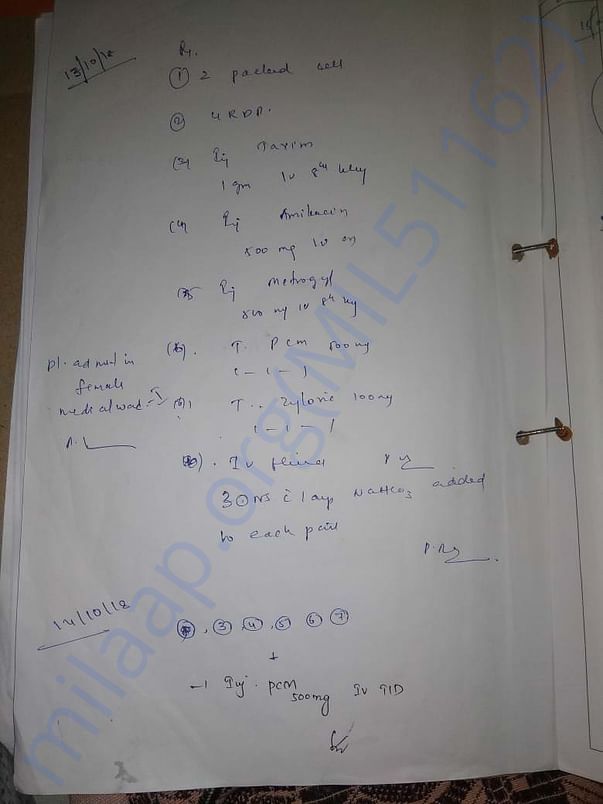 13/10/18
Rx.
① 2 packed cell
② 4 RDP.
(3) Inj Taxim
1 gm IV 8th hrly
(4) Inj Amikacin
500 mg IV
(5) Inj Metrogyl
500 mg IV 8th hly
(6). T. PCM 500mg
1-1-1
Pl. admit in
female
medical ward-I
T.. Zyloric 100mg
1-1-1
IV fluid
3 NS c 1 amp NaHCO3 added
to each pint
14/10/18
, ③, ④, ⑤ ⑥ ⑦
+
-1 Inj. PCM 500mg IV TID
milaap.org(MIL51162)